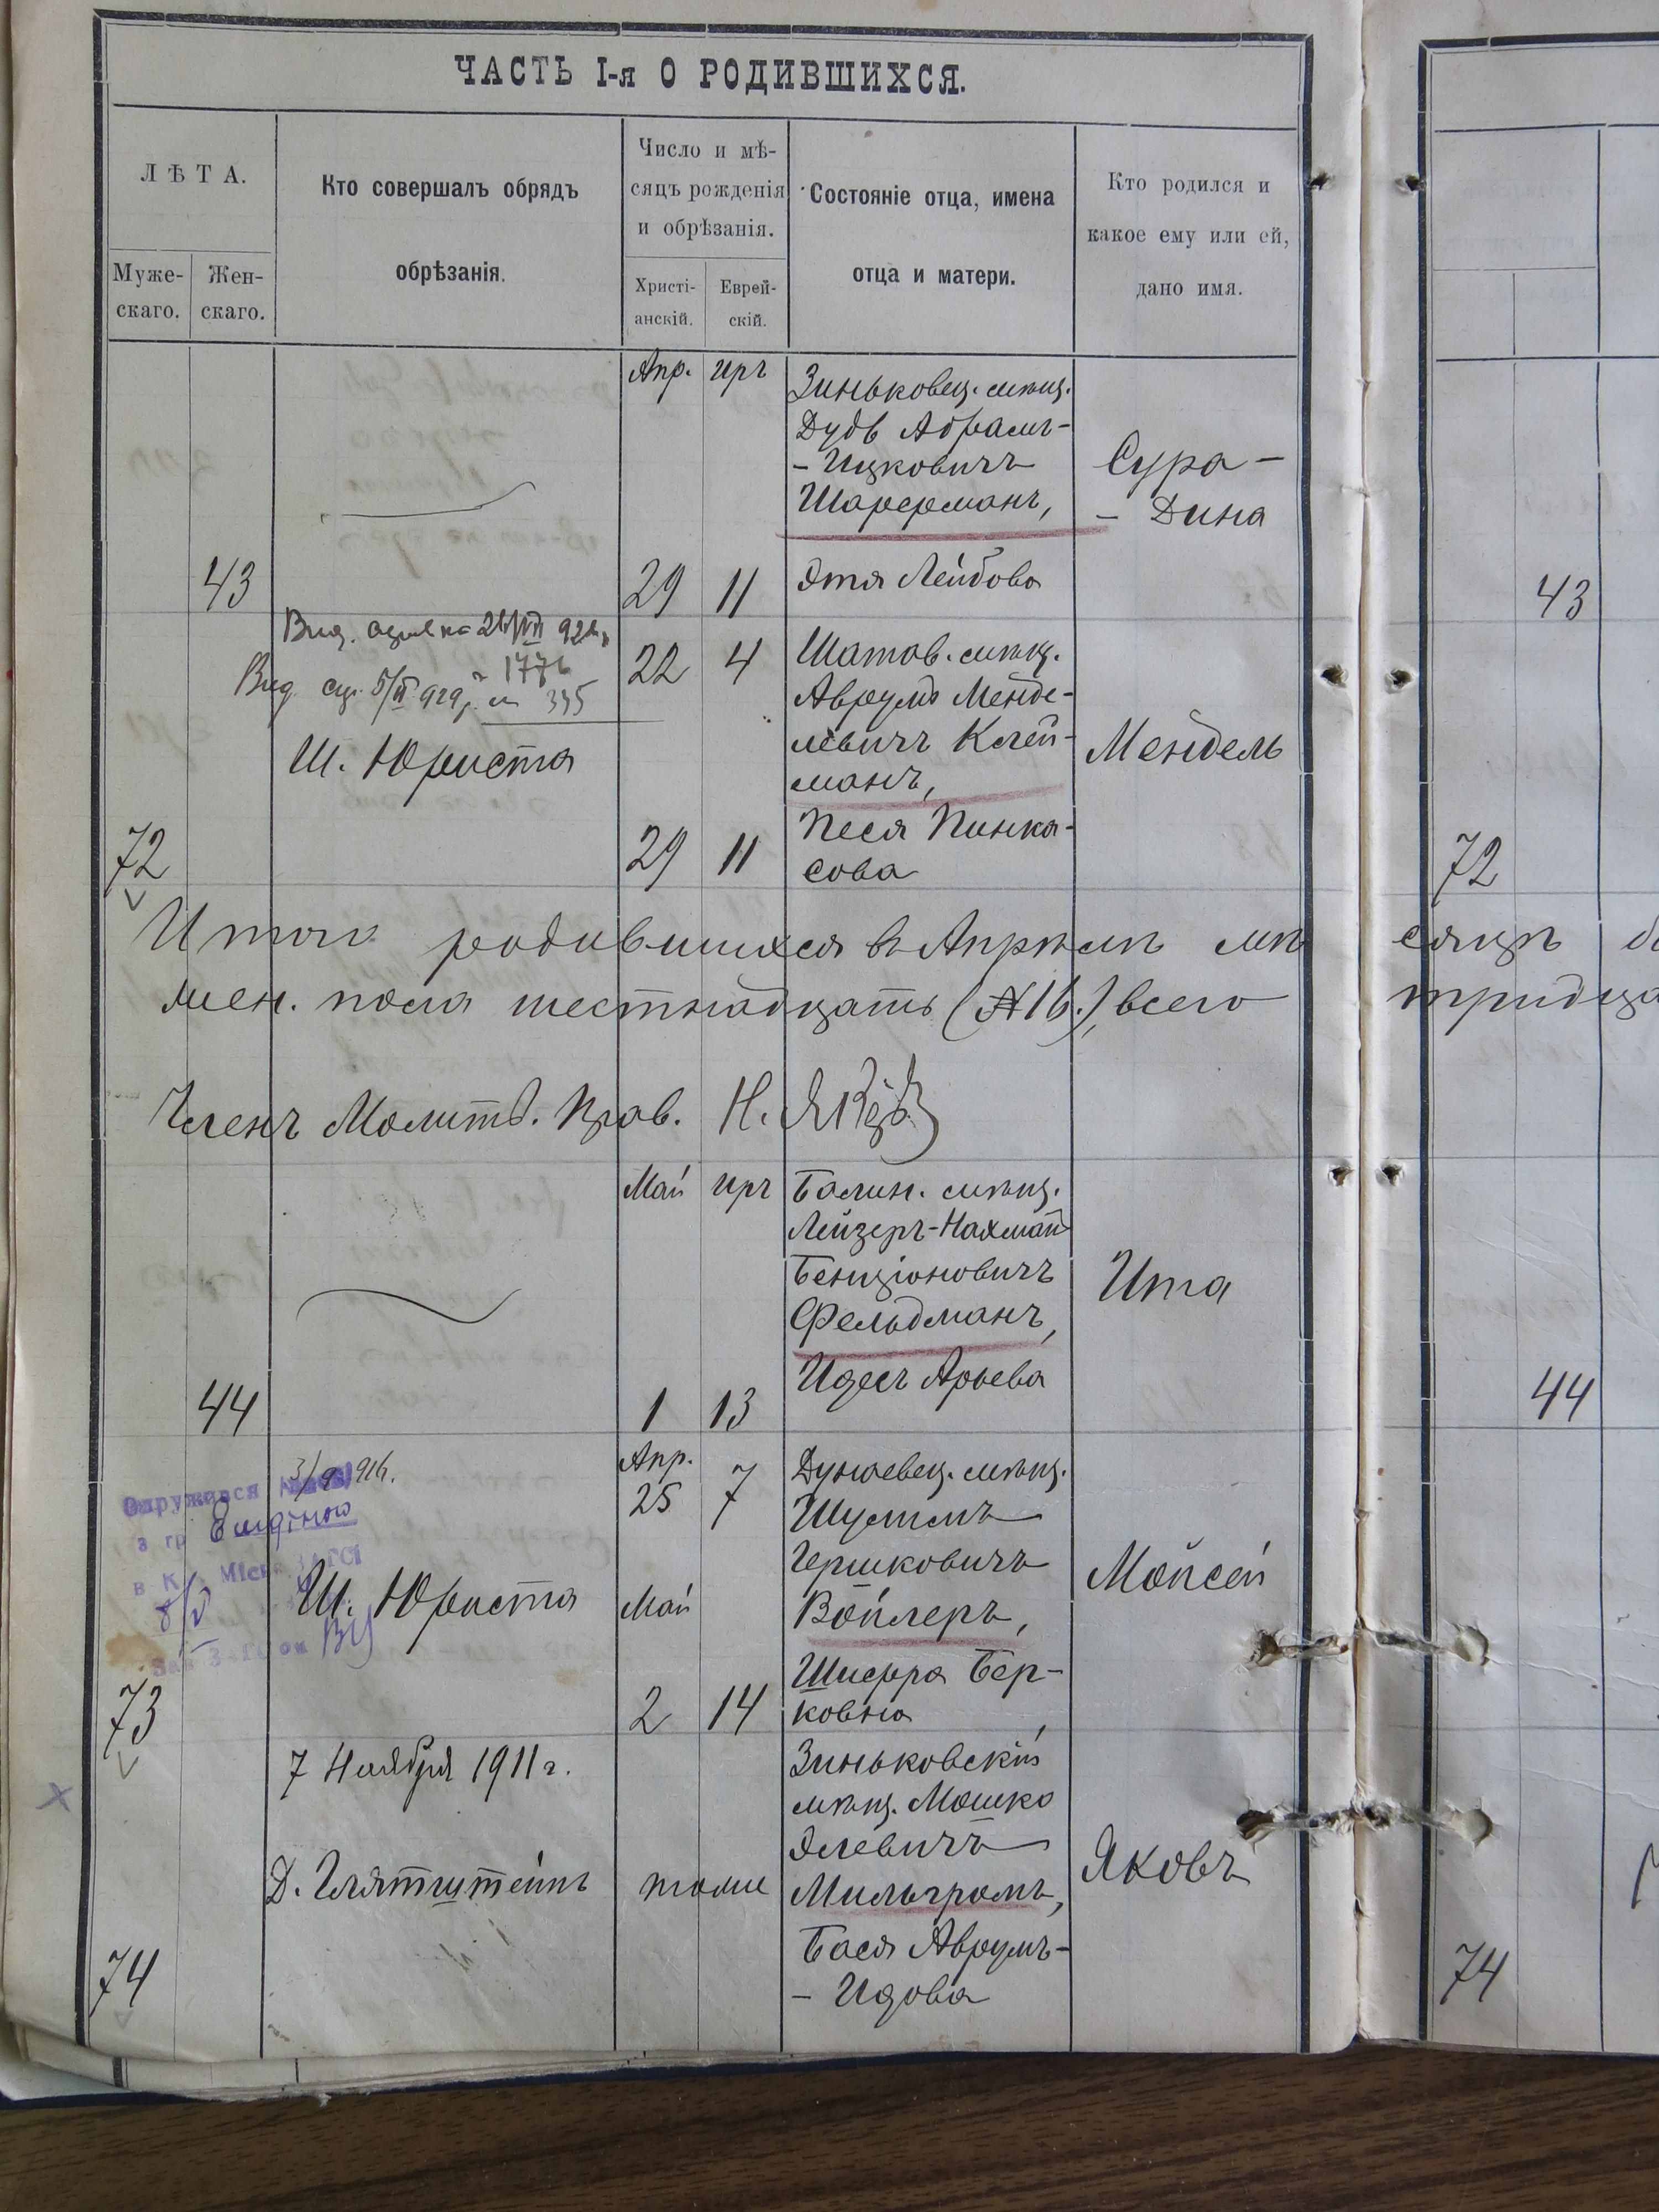 ЧАСТЬ I-я О РОДИВШИХСЯ.
ЛѢТА.
Муже-
скаго.
Жен-
скаго.
Кто совершалъ обрядъ
обрѣзанія.
Число и мѣ-
сяцъ рожденія
и обрѣзанія.
Христі-
анскій.
Еврей-
скій.
Состояніе отца, имена
отца и матери.
Кто родился и
какое ему или ей,
дано имя.
Апр. Иръ
Зиньковец. мѣщ.
Дудь Абрамъ-
-Ицковичъ
Шарерманъ,
Этя Лейбова
Сура-
- Дина
43
29 11
43
Выд.
924
1776
Вид. 5/II 929, 335
Ш. Юриста
22 4
Шатав. мѣщ.
Аврумъ Менде-
левичъ Клей-
манъ,
Песя Пинка-
сова
Мендель
72
29 11
72
Итого родившихся въ Апрѣлѣ мѣ сяцѣ
жен. пола шестнадцать (№16.), всего тридца
Членъ Молитв. Прав. Н.
Май Иръ
Балин. мѣщ.
Лейзеръ-Нахман
Бенціоновичъ
Фельдманъ,
Идесъ Арьева
Ита
44
1 13
44
916.
Одружився
з гр
в К. Міськ ЗАГСі
8/V
Ш. Юриста
Апр.
25 7
Май
2 14
Дунаевец. мѣщ.
Шулимъ
Гершковичъ
Войлеръ,
Шифра Бер-
ковна
Мойсей
73
7 Ноября 1911 г.
Д. Глятштейнъ
тоже
Зиньковскій
мѣщ. Мошко
Элевичъ
Мильгромъ,
Бася Аврумъ-
- Идова
Яковъ
74
74